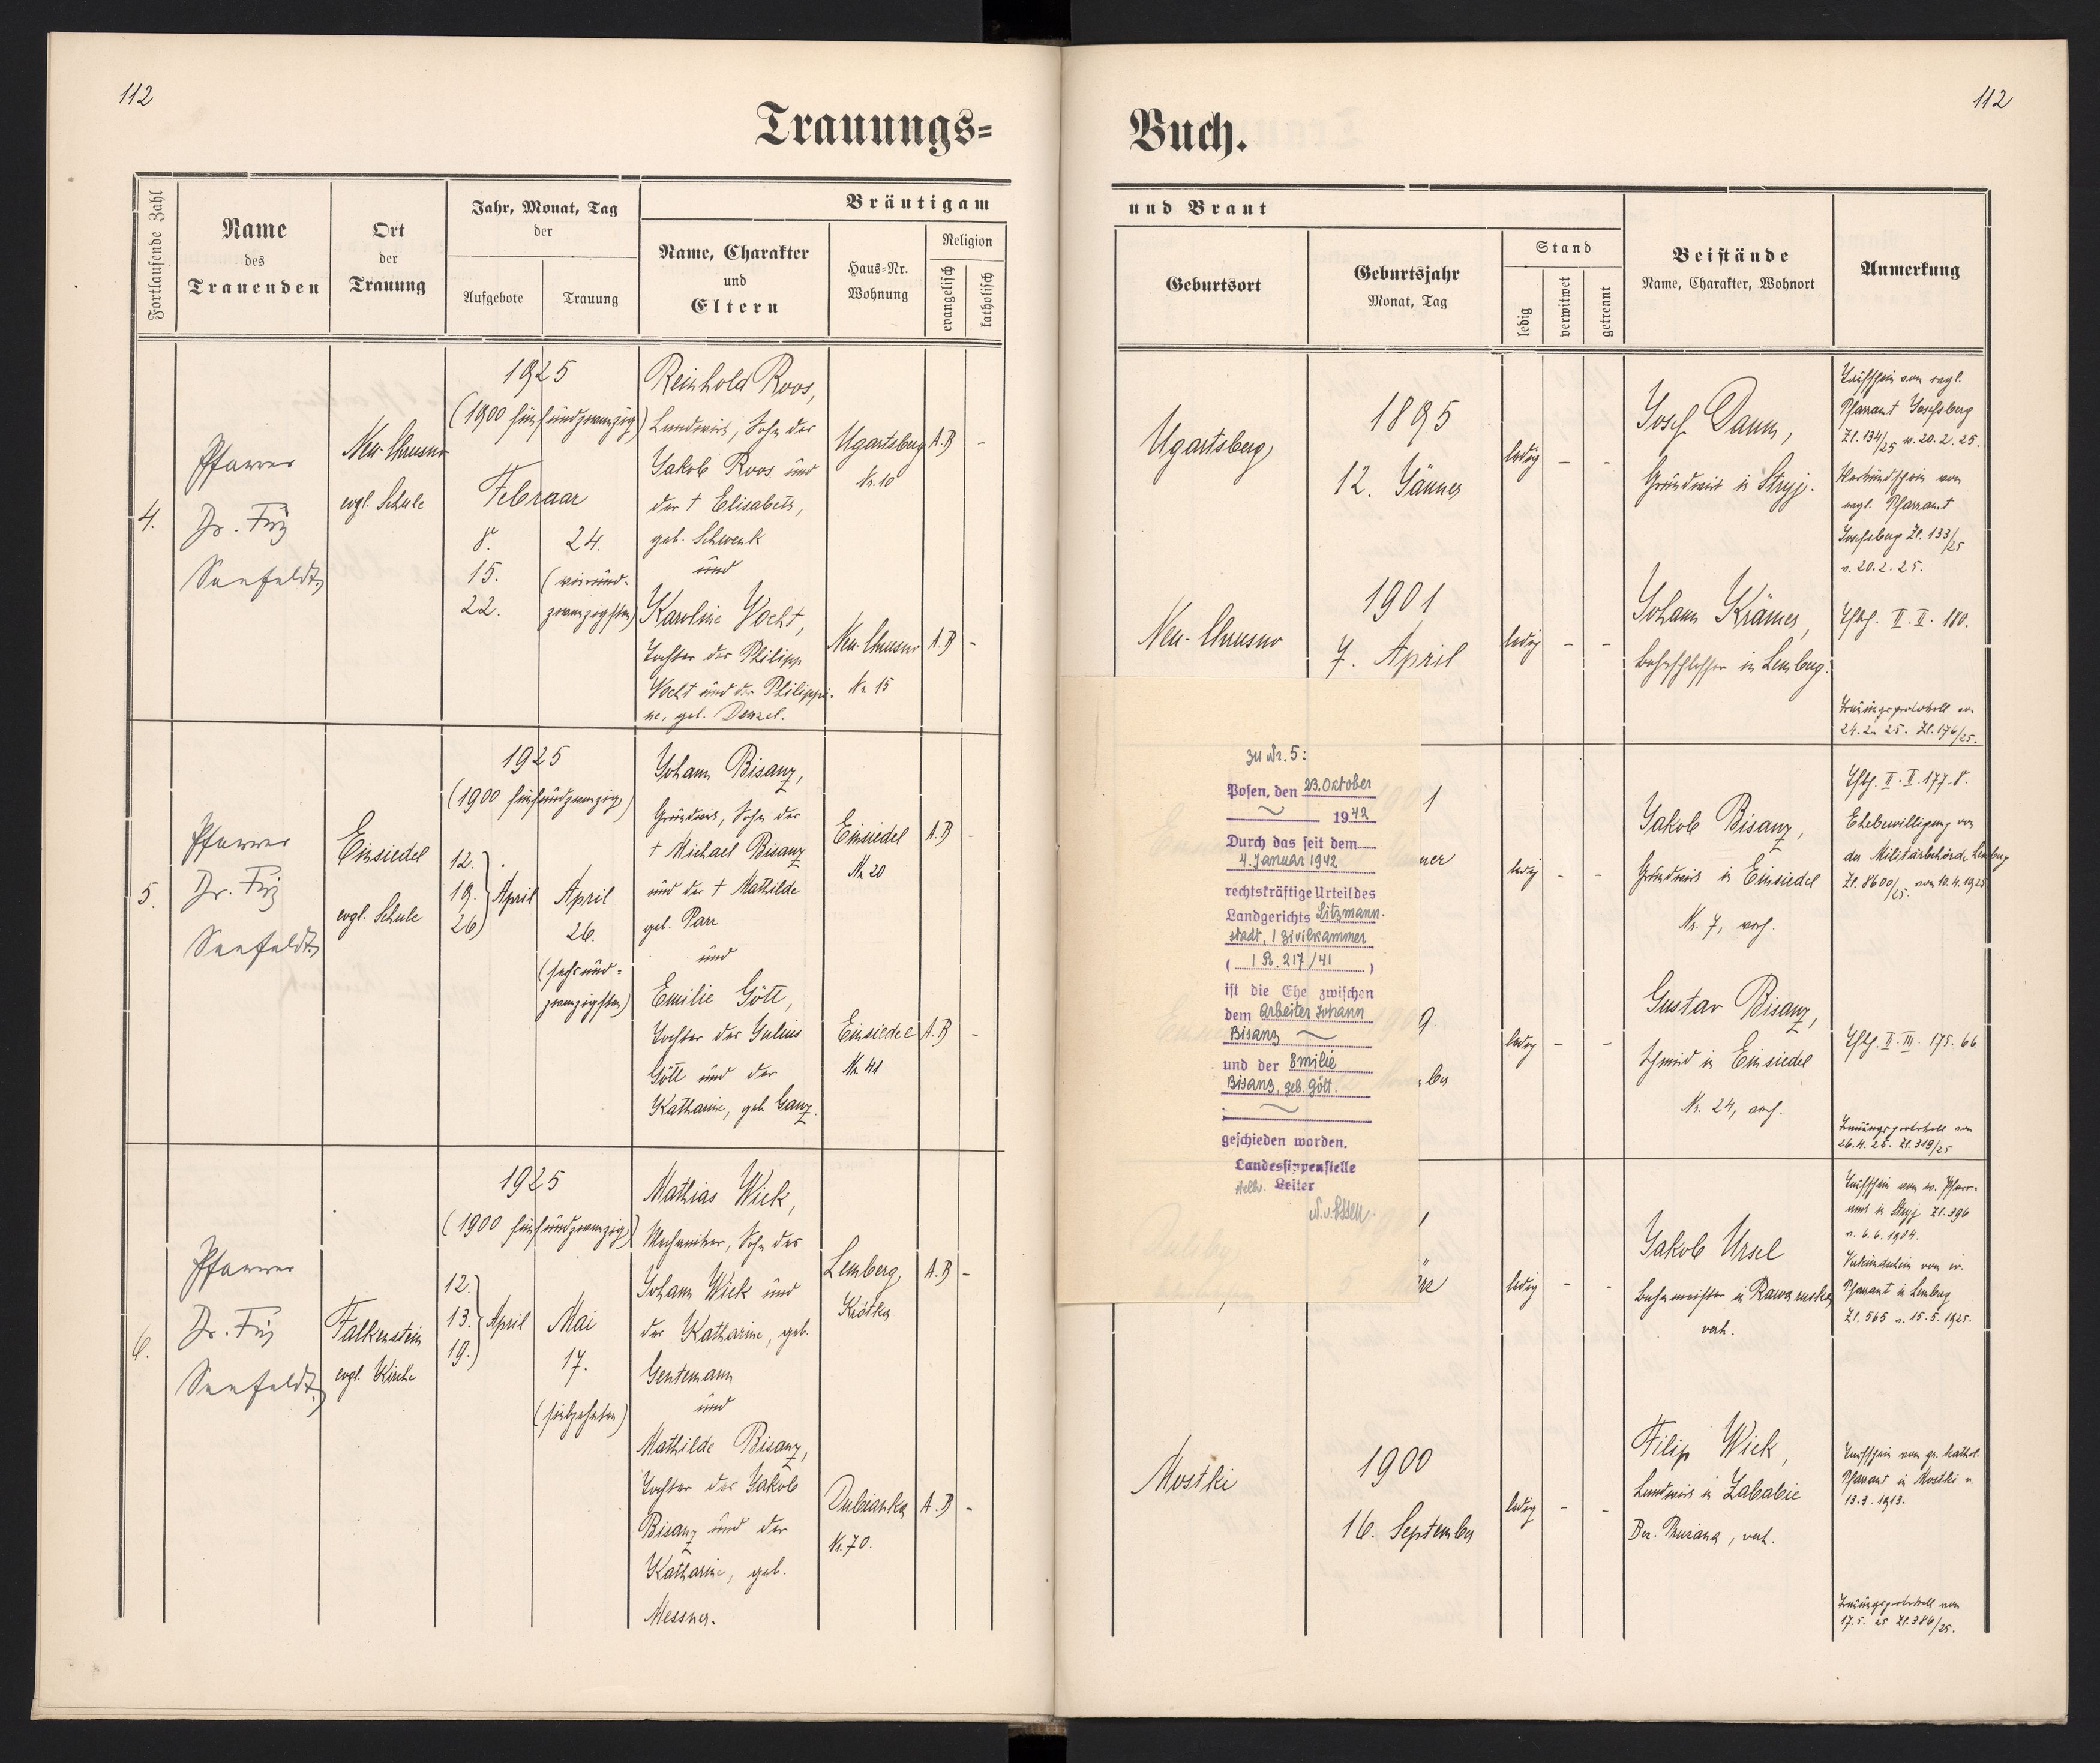 112
Trauungs=
Fortlaufende Zahl
Name
des
Trauenden
Ort
der
Trauung
Jahr, Monat, Tag
der
Aufgebote
Trauung
Bräutigam
Name, Charakter
und
Eltern
Haus=Nr.
Wohnung
Religion
evangelisch
katholisch
4.
Pfarrer
Dr. Friz
Seefeldt
Neu-Chrusno
evgl. Schule
1925
(1900 fünfundzwanzig)
Februar
8.
15.
22.
24.
(vierund-
zwanzigsten)
Reinhold Roos,
Landwirt, Sohn des
Jakob Roos und
der † Elisabeth,
geb. Schwenk
und
Karoline Vocht,
Tochter des Philipp
Vocht und der Philippi-
ne, geb. Denzel.
Ugartsberg
Nr. 10
A.B
-
Neu-Chrusno
Nr. 15
A.B
-
5.
Pfarrer
Dr. Friz
Seefeldt
Einsiedel
evgl. Schule
1925
(1900 fünfundzwanzig)
12.
19.
26.
April
April
26.
(sechsund-
zwanzigsten)
Johann Bisanz,
Grundwirt, Sohn des
† Michael Bisanz
und der † Mathilde
geb. Parr
und
Emilie Gött,
Tochter des Julius
Gött und der
Katharine, geb. Ganz.
Einsiedel
Nr. 20
A.B
-
Einsiedel
Nr. 41
A.B
-
6.
Pfarrer
Dr. Friz
Seefeldt
Falkenstein
evgl. Kirche
1925
(1900 fünfundzwanzig)
12.
13.
19.
April
Mai
17.
(siebzehnten)
Mathias Wick,
Mechaniker, Sohn des
Johann Wick und
der Katharine, geb.
Gentemann
und
Mathilde Bisanz,
Tochter des Jakob
Bisanz und der
Katharine, geb.
Messner.
Lemberg,
Krótka
A.B
-
Dubianka
Nr. 70.
A.B
-
112
Buch.
und Braut
Geburtsort
Geburtsjahr
Monat, Tag
Stand
ledig
verwitwet
getrennt
Beistände
Name, Charakter, Wohnort
Anmerkung
Ugartsberg
1895
12. Jänner
ledig
-
-
Josef Daum,
Grundwirt in Stryj.
Taufschein vom evgl.
Pfarramt Josefsberg
Zl. 134/25 v. 20.2.25.
Verkündschein vom
evgl. Pfarramt
Josefsberg Zl. 133/25
v. 20.2.25.
Neu-Chrusno
1901
7. April
ledig
-
-
Johann Krämer,
Bahnschlosser in Lemberg.
Tfbg. II. II. 180.
Trauungsprotokoll vom
24.2.25. Zl. 176/25.
zu Nr. 5:
Posen, den 23. Oktober
1942
Durch das seit dem
4. Januar 1942
rechtskräftige Urteil des
Landgerichts Litzmann-
stadt, 1 Zivilkammer
( 1 R. 217/41 )
ist die Ehe zwischen
dem Arbeiter Johann
Bisanz
und der Emilie
Bisanz, geb. Gött.
geschieden worden.
Landessippenstelle
stellv. Leiter
N. v. Essen
1
ner
ledig
-
-
Jakob Bisanz,
Grundwirt in Einsiedel
Nr. 7, verh.
Tfbg. II. II. 177. 8.
Ehebewilligung von
der Militärbehörde Lemberg
Zl. 8600/25. vom 10.4.1925
9
ber
ledig
-
-
Gustav Bisanz,
Schmied in Einsiedel
Nr. 24, verh.
Tfbg. II. III. 175. 66.
Trauungsprotokoll vom
26.4.25. Zl. 319/25
ledig
-
-
Jakob Ursel
Bahnmeister in Rawa ruska,
verh.
Taufschein vom ev. Pfarr-
amt in Stryj Zl. 396
v. 6.6.1904.
Verkündschein vom ev.
Pfarramt in Lemberg
Zl. 565 v. 15.5.1925.
Mostki
1900
16. September
ledig
-
-
Filip Wick,
Landwirt in Zababie
verh.
Taufschein vom gr. kathol.
Pfarramt in Mostki v.
13.3.1913.
Trauungsprotokoll vom
17.5.25 Zl. 386/25.